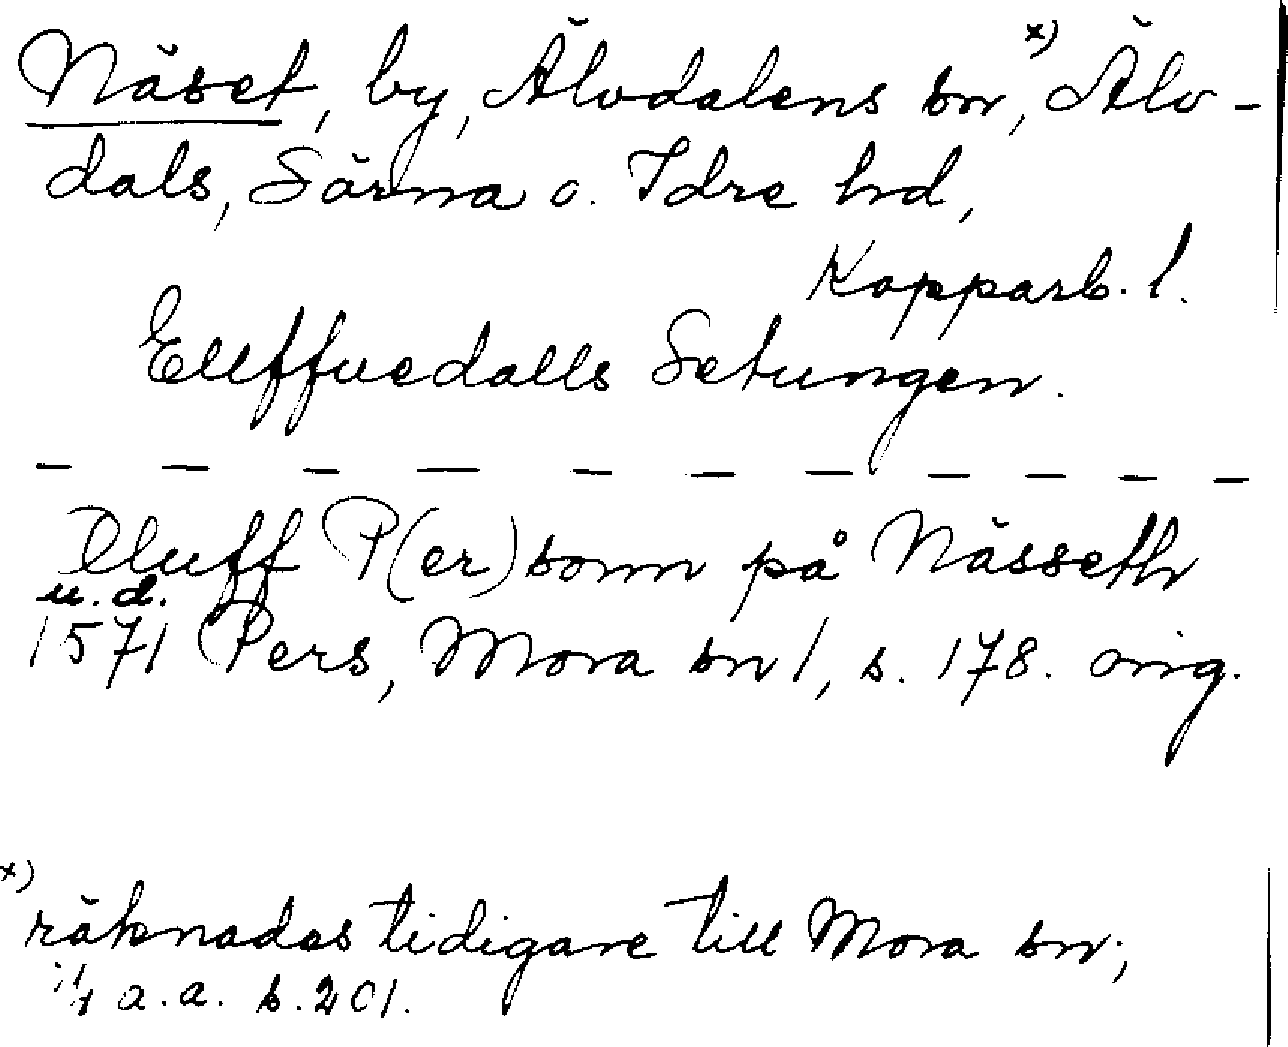 Näset, by, Älvdalens sn,ˣ⁾ Älv-
dals, Särna o. Idre hd,
Kopparb. l.
Elleffuedalls Setungen.
— — — — — — — — — — —
Oluff P(er)sonn på Nässeth
u.d.
1571 Pers, Mora sn 1, s. 178. orig.
x)
räknades tidigare till Mora sn;
a.a. s. 201.